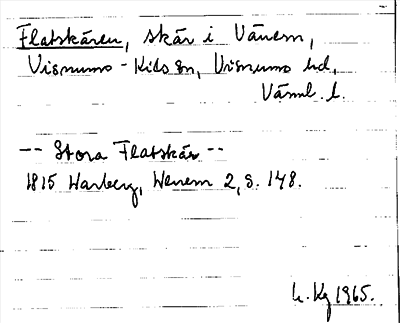 Flatskären, skär i Vänern,
Visnums-Kils sn, Visnums hd,
Värml. l.
-- Stora Flatskär --
1815 Warberg, Wenern 2, s. 148.
1965.